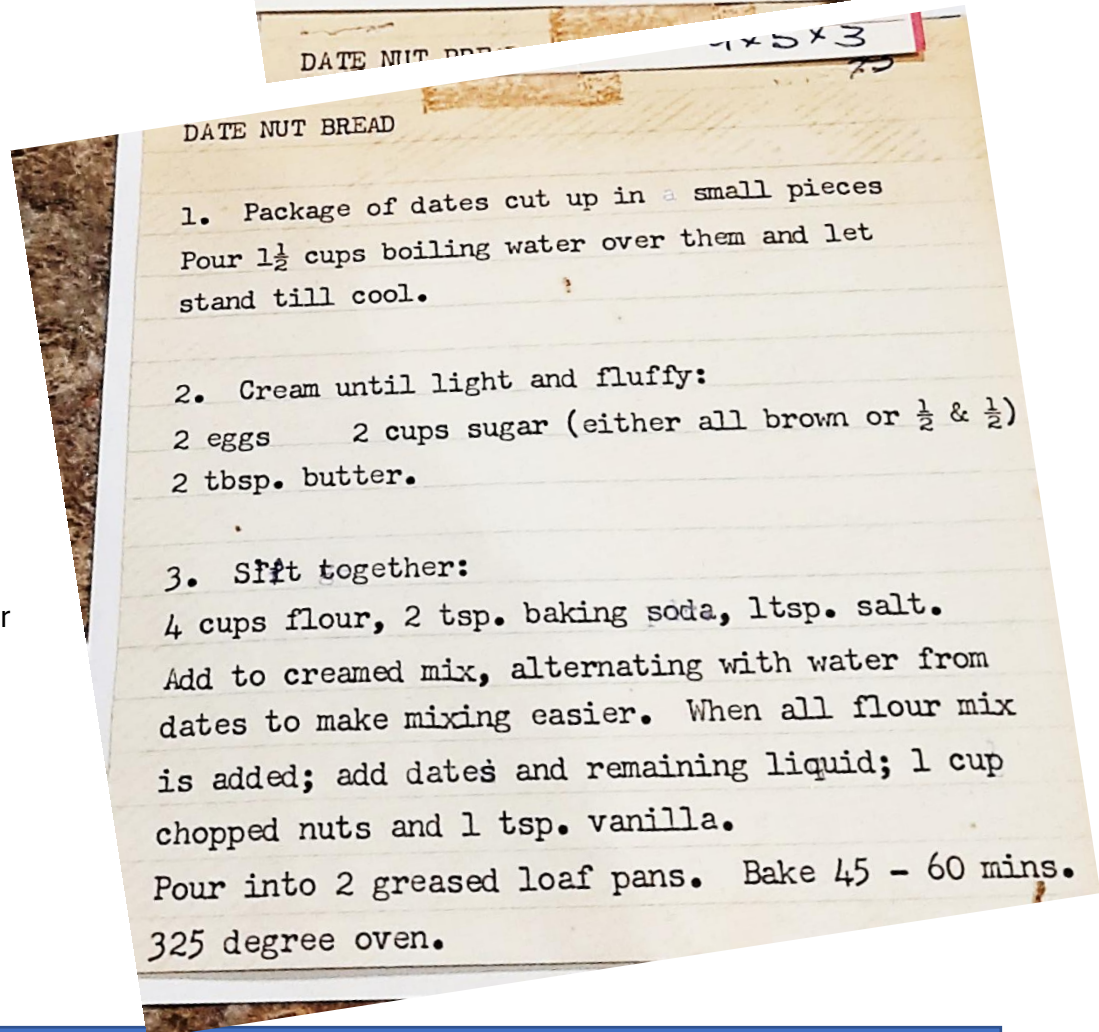 DATE NUT
4x5x3
DATE NUT BREAD
1. Package of dates cut up in a small pieces
Pour 1½ cups boiling water over them and let
stand till cool.
2. Cream until light and fluffy:
2 eggs 2 cups sugar (either all brown or ½ & ½)
2 tbsp. butter.
3. Sift together:
4 cups flour, 2 tsp. baking soda, 1tsp. salt.
Add to creamed mix, alternating with water from
dates to make mixing easier. When all flour mix
is added; add dates and remaining liquid; 1 cup
chopped nuts and 1 tsp. vanilla.
Pour into 2 greased loaf pans. Bake 45 - 60 mins.
325 degree oven.
r